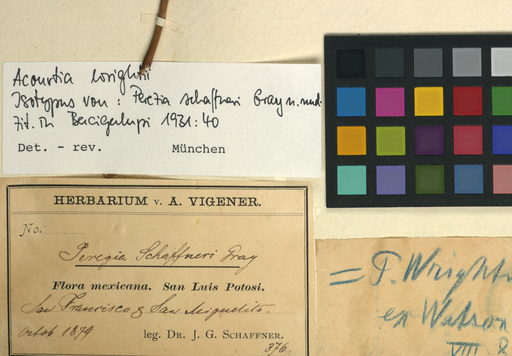 Acourtia wrightii
Isotypus von: Perezia schaffneri Gray n. nud.
Zit. in Bacigalupi 1931:40
Det. - rev. München
HERBARIUM v. A. VIGENER.
No.
Perezia Schaffneri Gray
Flora mexicana. San Luis Potosi.
San Francisco & San Miguelito.
Octob. 1879
leg. DR. J. G. SCHAFFNER.
376.
= P. Wrightii
ex Watson
VIII